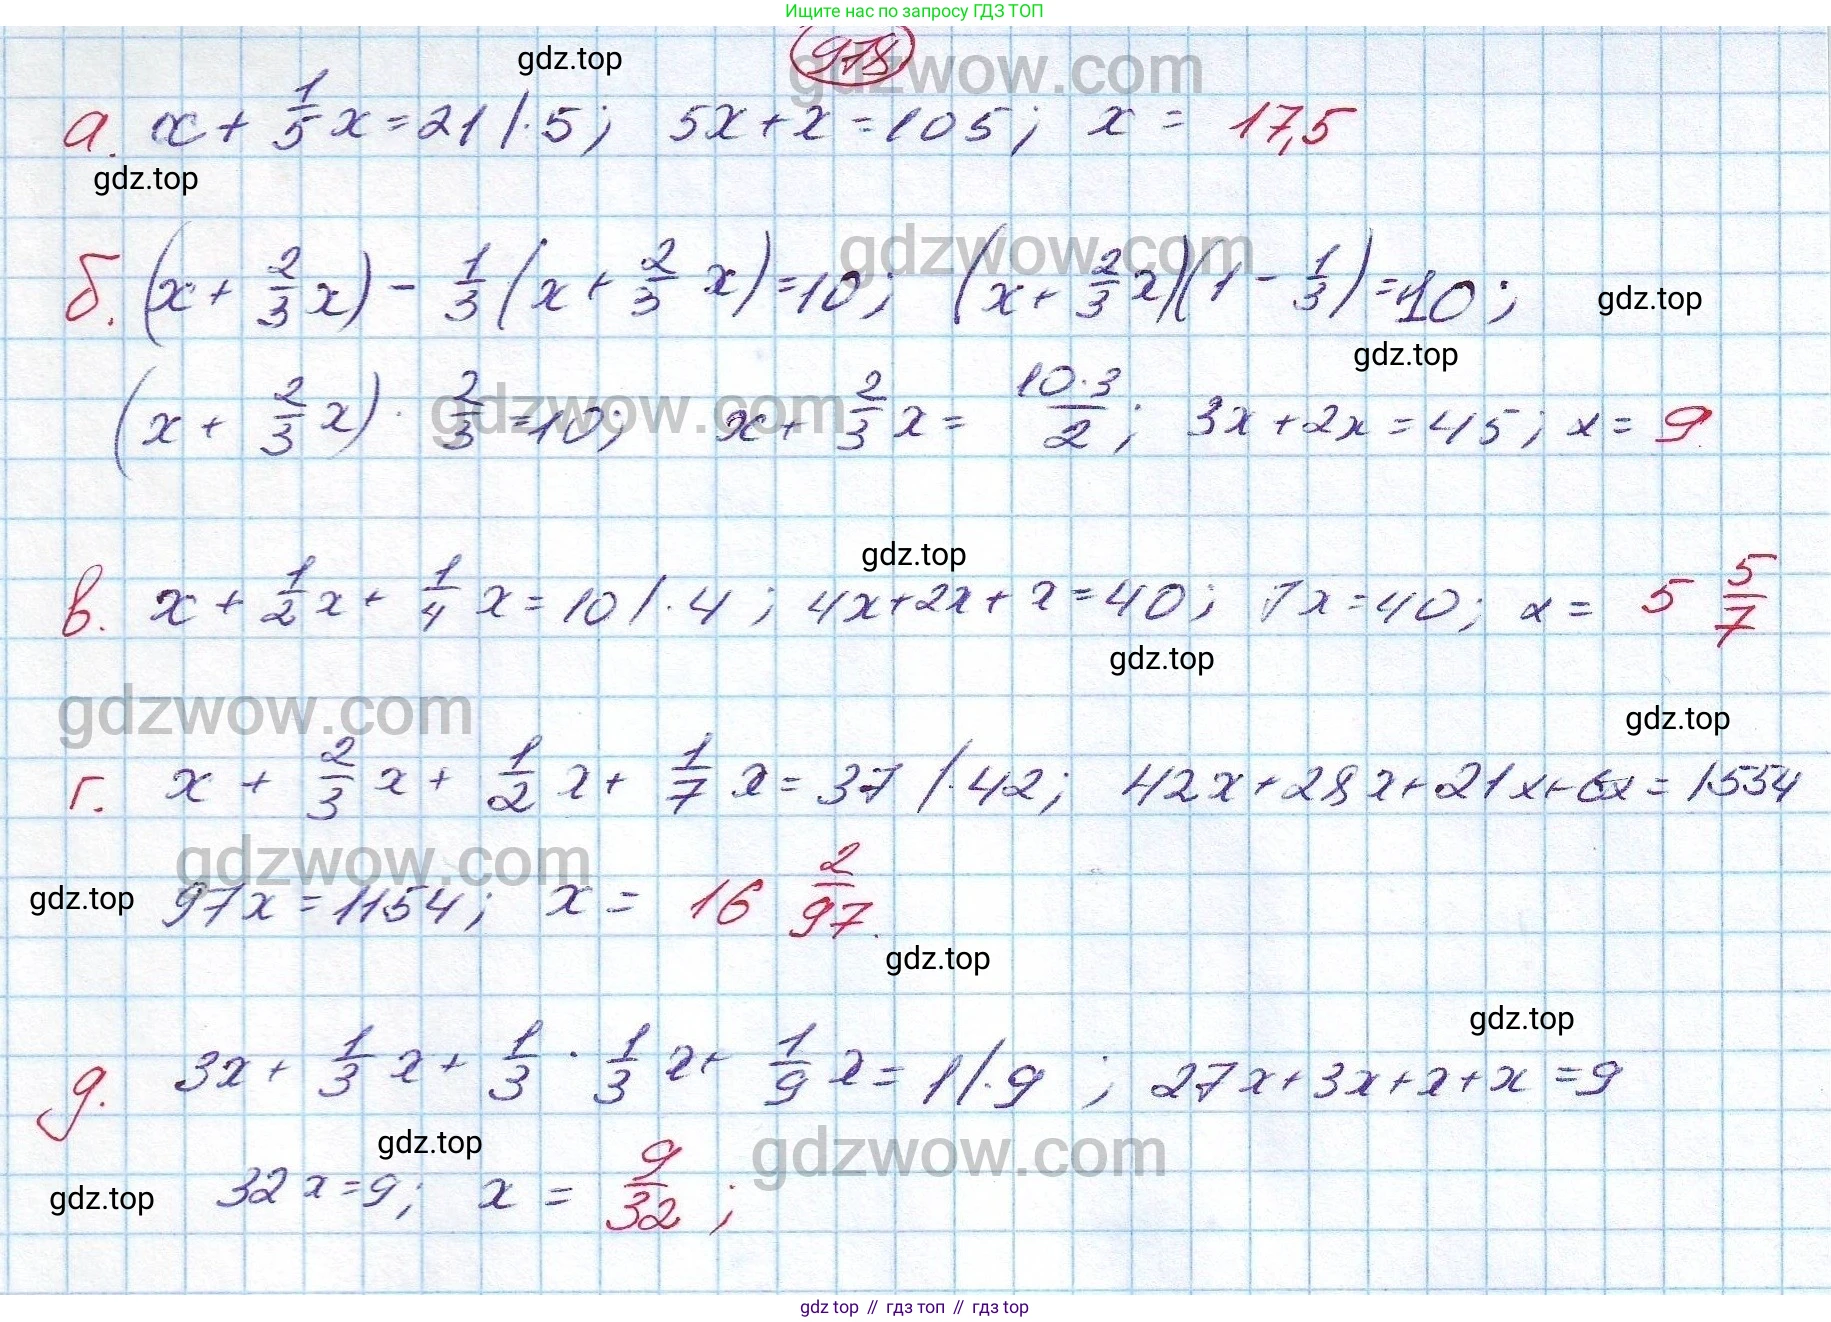 Ищите нас по запросу ГДЗ ТОП
978
gdz.top
gdzwow.com
а. x + 1/5 x = 21 | · 5; 5x + x = 105; x = 17,5
gdz.top
gdzwow.com
б. (x + 2/3 x) - 1/3 (x + 2/3 x) = 10; (x + 2/3 x)(1 - 1/3) = 10;
gdz.top
gdz.top
(x + 2/3 x) · 2/3 = 10; x + 2/3 x = 10·3/2; 3x + 2x = 45; x = 9.
gdzwow.com
gdz.top
в. x + 1/2 x + 1/4 x = 10 | · 4; 4x + 2x + x = 40; 7x = 40; x = 5 5/7
gdz.top
gdzwow.com
gdz.top
г. x + 2/3 x + 1/2 x + 1/7 x = 37 | · 42; 42x + 28x + 21x + 6x = 1554
gdzwow.com
gdz.top
97x = 1154; x = 16 2/97.
gdz.top
gdz.top
д. 3x + 1/3 x + 1/3 · 1/3 x + 1/9 x = 1 | · 9; 27x + 3x + x + x = 9
gdz.top
gdzwow.com
gdz.top
32x = 9; x = 9/32;
gdz top // гдз топ // гдз top